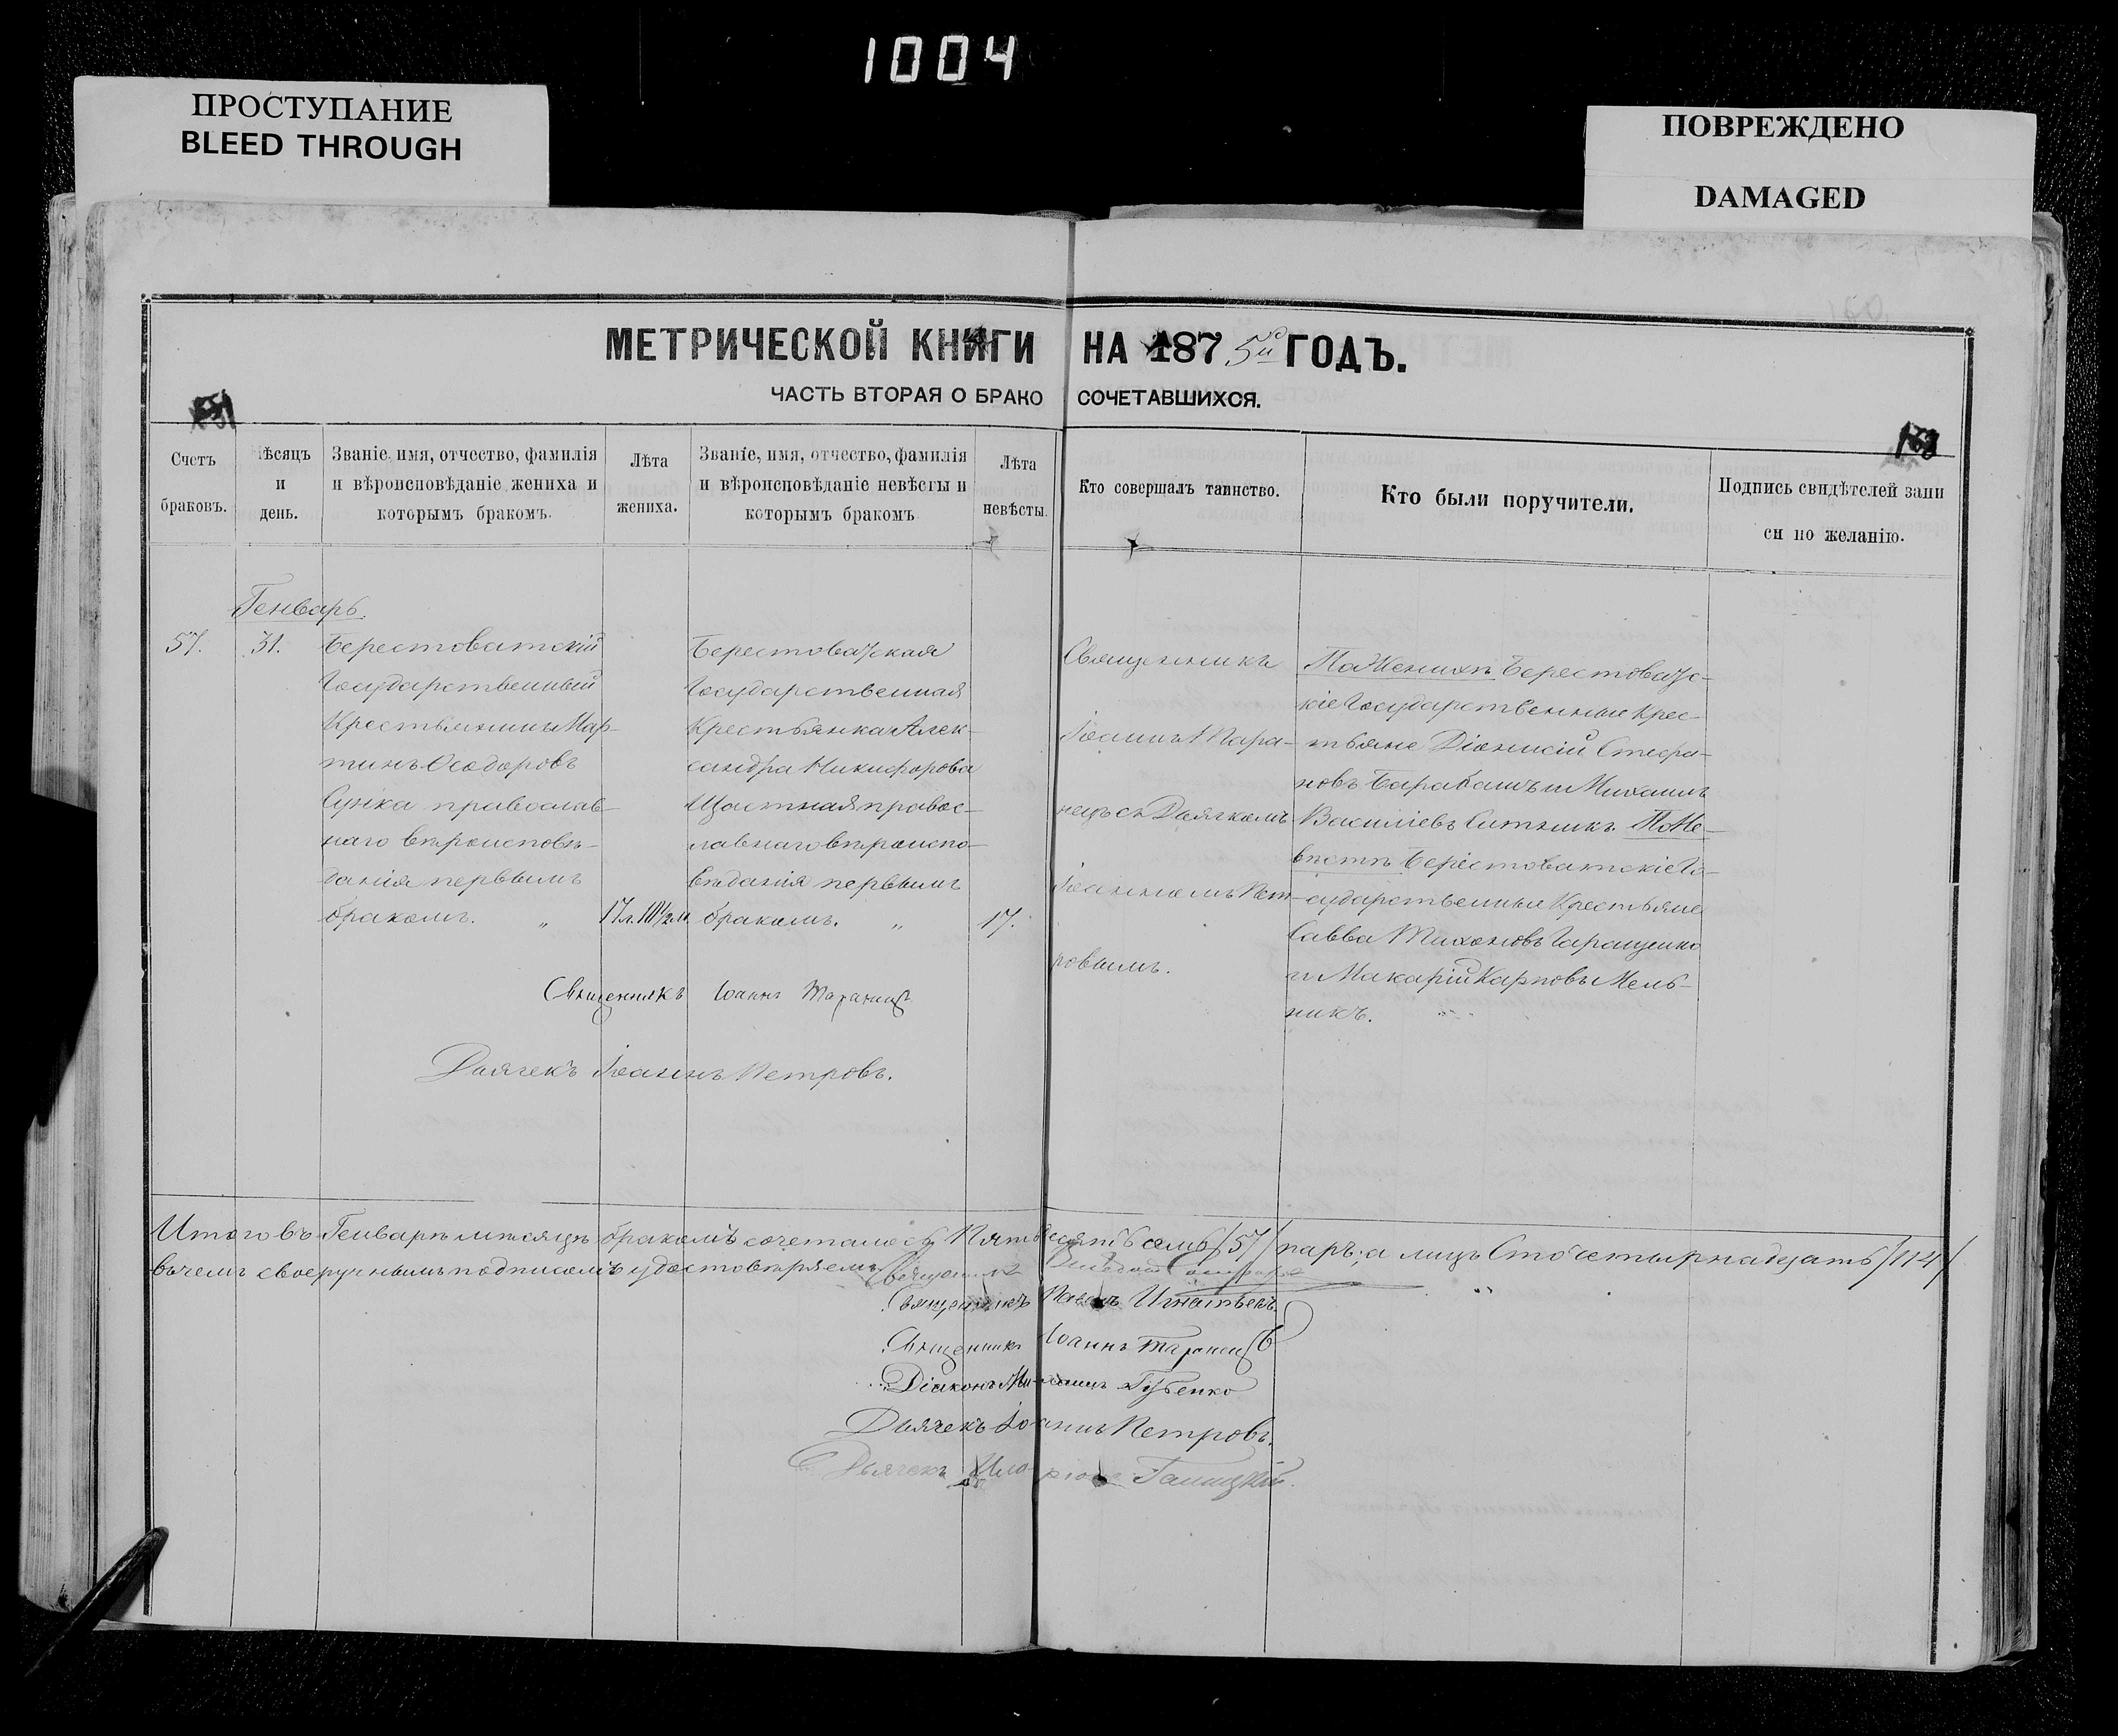 1004
ПРОСТУПАНИЕ
BLEED THROUGH
ПОВРЕЖДЕНО
DAMAGED
МЕТРИЧЕСКОЙ КНИГИ НА 1875й ГОДЪ.
ЧАСТЬ ВТОРАЯ О БРАКОСОЧЕТАВШИХСЯ.
Счетъ
браковъ.
Мѣсяцъ
и
день.
Званіе, имя, отчество, фамилія
и вѣроисповѣданіе жениха и
которымъ бракомъ.
Лѣта
жениха.
Званіе, имя, отчество, фамилія
и вѣроисповѣданіе невѣсты и
которымъ бракомъ
Лѣта
невѣсты.
Кто совершалъ таинство.
Кто были поручители.
Подпись свидѣтелей запи
си по желанію.
Генварь.
57.
31.
Берестоватскій
Государственный
Крестьянинъ Мар-
тинъ Ѳеодоровъ
Сушка православ-
наго вѣроисповѣ-
данія первымъ
бракомъ. "
17 л. 10 1/2 м.
Берестоватская
Государственная
Крестьянка Алек-
сандра Никифорова
Щастная правос-
лавнаго вѣроиспо-
вѣданія первымъ
бракомъ. "
17.
Священникъ
Іоаннъ Тара-
нецъ съ Дьячкомъ
Іоанномъ Пет-
ровымъ.
По Женихѣ Берестоватс-
кіе Государственные Крес-
тьяне Діонисій Стефа-
новъ Барабашъ и Михаилъ
Василіевъ Ситникъ. По Не-
вѣстѣ Берестоватскіе Го-
сударственные Крестьяне
Савва Тихоновъ Геращенко
и Макарій Карповъ Мель-
никъ.
Священникъ Іоаннъ Таранецъ
Дьячекъ Іоаннъ Петровъ.
Итого въ Генварѣ мѣсяцѣ бракомъ сочеталось Пятьдесятъ семь /57/ паръ, а лицъ Сто четырнадцать /114/
въ чемъ своеручнымъ подписомъ удостовѣряемъ. Священникъ
Священникъ Павелъ Игнатьевъ
Священникъ Іоаннъ Таранецъ
Діаконъ Михаилъ Губенко
Дьячекъ Іоаннъ Петровъ.
Дьячекъ Иларіонъ